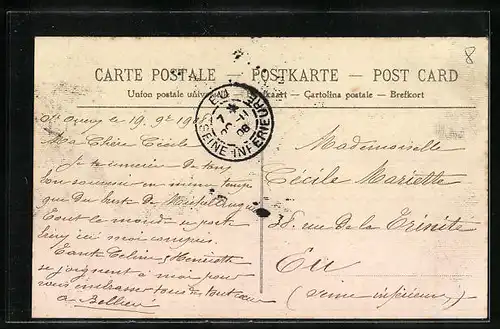 8
CARTE POSTALE — POSTKARTE — POST CARD
Union postale universelle — Weltpostkarte — Cartolina postale — Brefkort
EU
7
08
SEINE INFÉRIEURE
19. 9bre 1908
Ma Chère Cécile
Je te remercie de ton
bon souvenir en même temps
que du buste de Michel Ange
Tout le monde se porte
bien ici moi compris.
Tante Céline, Henriette
se joignent à moi pour
vous embrasser tous de tout cœur
Mademoiselle
Cécile Mariette
38, rue De la Trinité
Eu
(Seine inférieure)